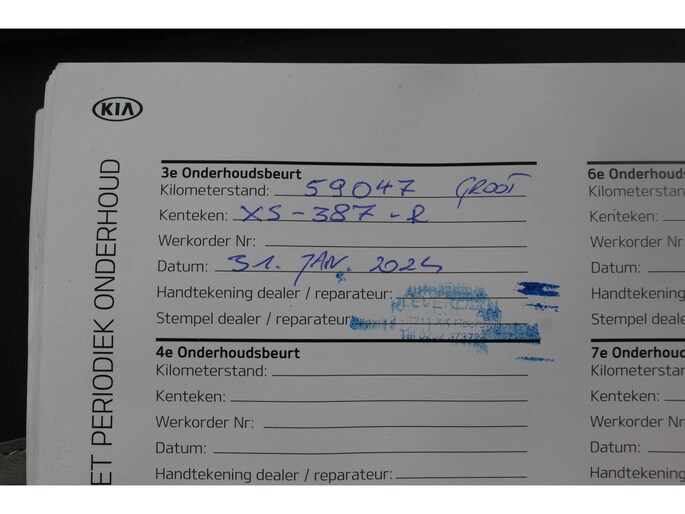 KIA
ET PERIODIEK ONDERHOUD
3e Onderhoudsbeurt
Kilometerstand: 59047 GROOT
Kenteken: XS-387-R
Werkorder Nr:
Datum: 31. JAN. 2024
Handtekening dealer / reparateur:
Stempel dealer / reparateur
4e Onderhoudsbeurt
Kilometerstand:
Kenteken:
Werkorder Nr:
Datum:
Handtekening dealer / reparateur:
6e Onderhouds
Kilometerstan
Kenteken:
Werkorder Nr
Datum:
Handtekening
Stempel deale
7e Onderhoud
Kilometerstan
Kenteken:
Werkorder Nr
Datum:
Handtekening